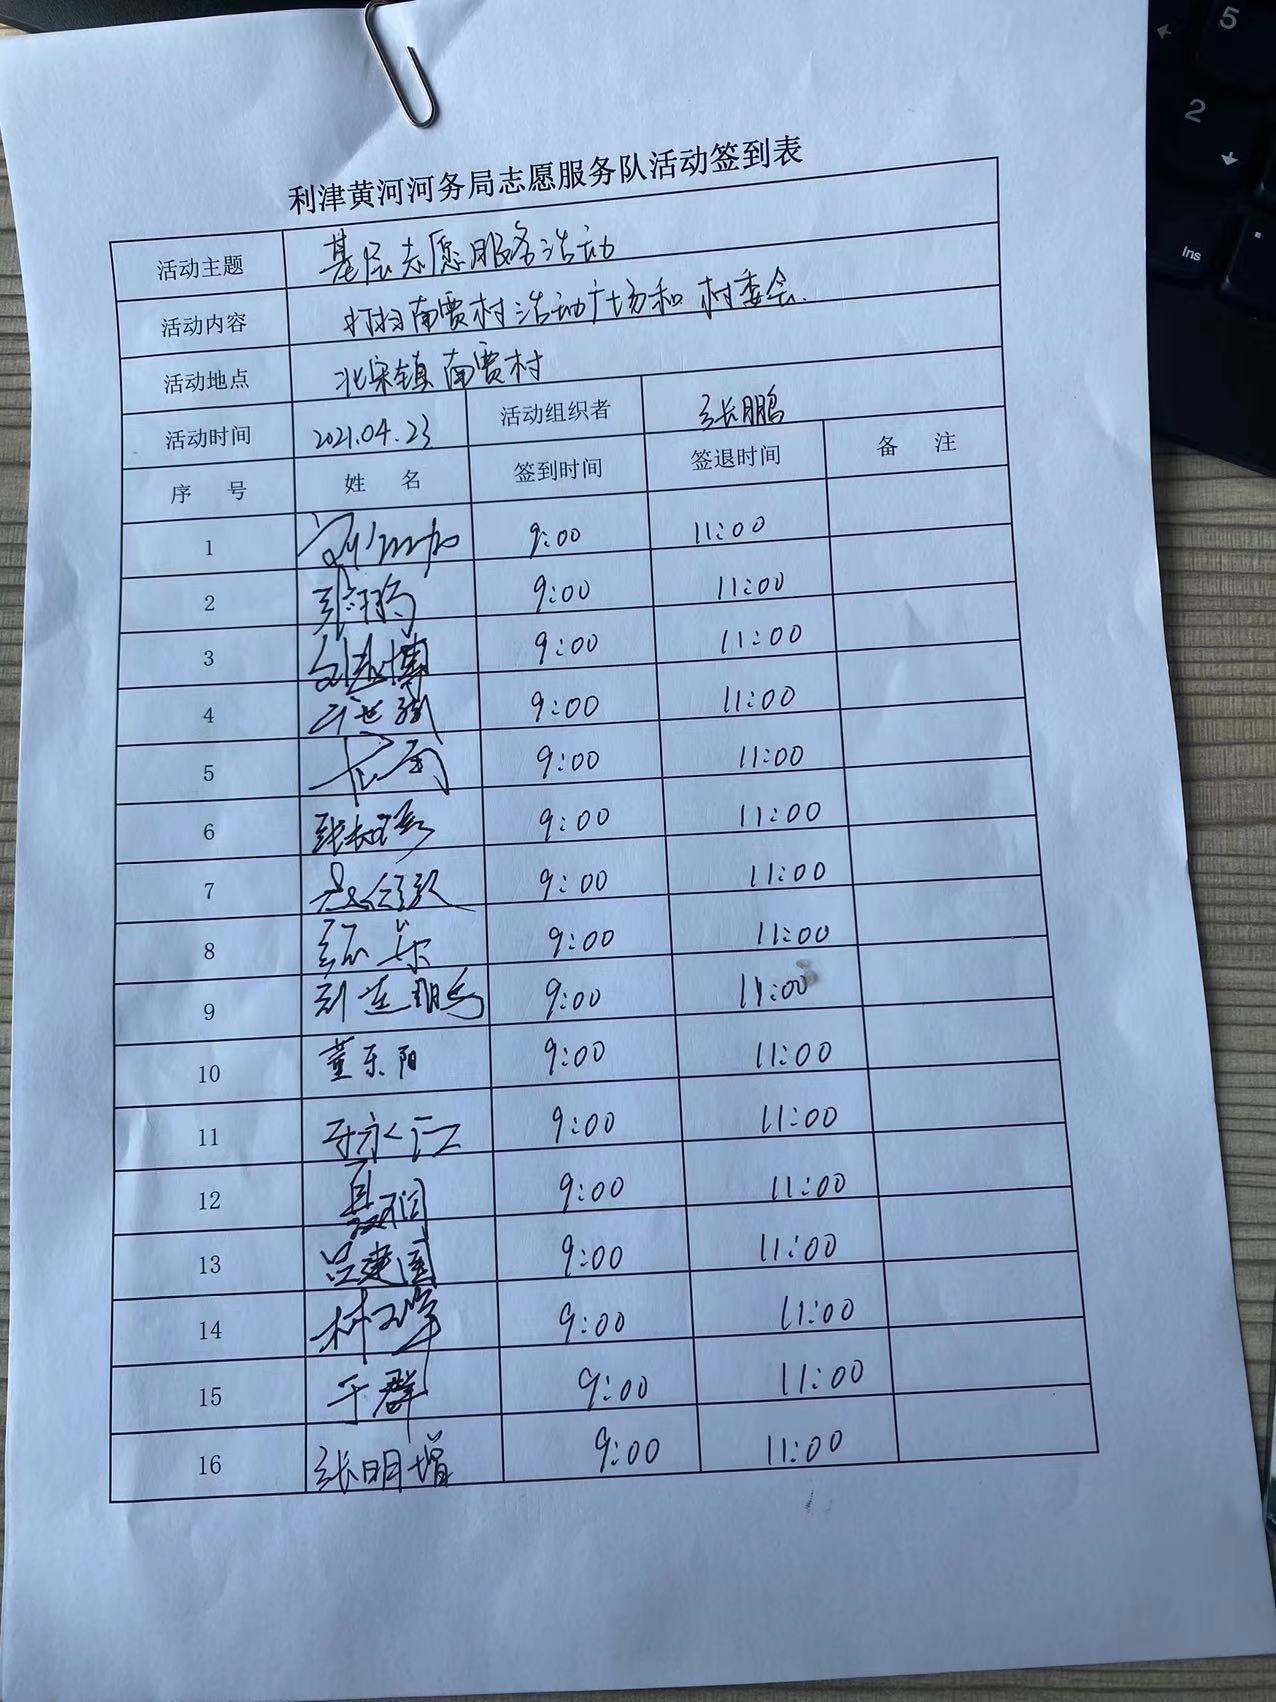 利津黄河河务局志愿服务队活动签到表
活动主题 基层志愿服务活动
活动内容 打扫南贾村活动广场和村委会.
活动地点 北宋镇南贾村
活动时间 2021.04.23 活动组织者 张鹏
序 号 姓 名 签到时间 签退时间 备 注
1 9:00 11:00
2 9:00 11:00
3 9:00 11:00
4 9:00 11:00
5 9:00 11:00
6 9:00 11:00
7 9:00 11:00
8 9:00 11:00
9 9:00 11:00
10 董乐阳 9:00 11:00
11 9:00 11:00
12 9:00 11:00
13 吕建国 9:00 11:00
14 9:00 11:00
15 于群 9:00 11:00
16 张明增 9:00 11:00
5
2
Ins